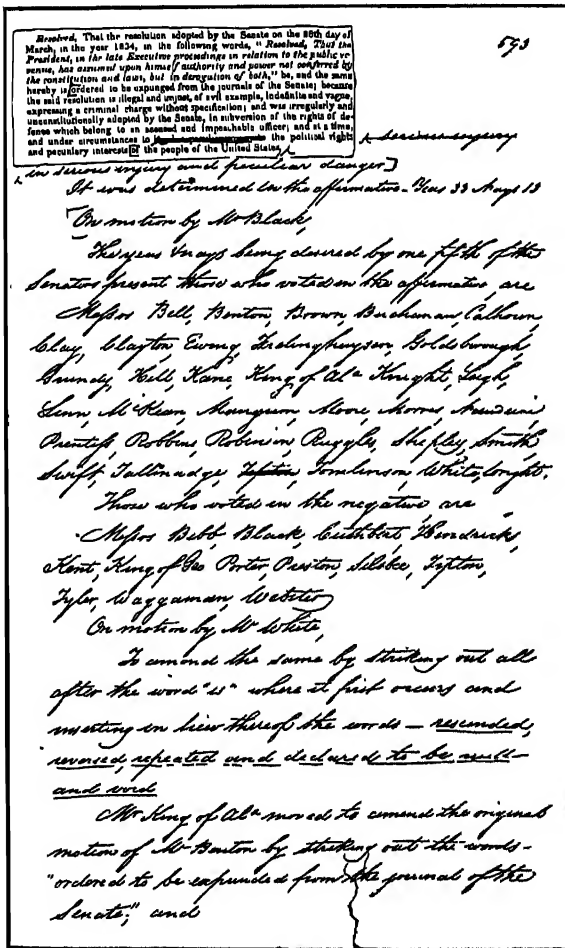 593
Resolved, That the resolution adopted by the Senate on the 28th day of
March, in the year 1834, in the following words, "Resolved, That the
President, in the late Executive proceedings in relation to the public re-
venue, has assumed upon himself authority and power not conferred by
the constitution and laws, but in derogation of both," be, and the same
hereby is ordered to be expunged from the journals of the Senate; because
the said resolution is illegal and unjust, of evil example, indefinite and vague,
expressing a criminal charge without specification; and was irregularly and
unconstitutionally adopted by the Senate, in subversion of the rights of de-
fence which belong to an accused and impeachable officer; and at a time,
and under circumstances to the political rights
and pecuniary interests of the people of the United States,
serious injury
in serious injury and peculiar danger]
It was determined in the affirmative – Yeas 33 Nays 13
On motion by Mr Black,
The yeas & nays being desired by one fifth of the
Senators present those who voted in the affirmative, are
Messrs Bell, Benton, Brown, Buchanan, Calhoun,
Clay, Clayton, Ewing, Frelinghuysen, Goldsborough,
Grundy, Hill, Kane, King of Ala Knight, Leigh,
Linn, McKean, Mangum, Moore, Morris, Naudain
Prentiss, Robbins, Robinson, Ruggles, Shepley, Smith
Swift, Tallmadge, Tipton, Tomlinson, White, Wright.
Those who voted in the negative, are
Messrs Bibb, Black, Cuthbert, Hendricks,
Kent, King of Geo Porter, Preston, Silsbee, Tipton,
Tyler, Waggaman, Webster
On motion by Mr White,
To amend the same by striking out all
after the word "is" where it first occurs and
inserting in lieu thereof the words – rescinded,
reversed, repeated and declared to be null
and void
Mr King of Ala moved to amend the original
motion of Mr Benton by striking out the words –
"ordered to be expunded from the journal of the
Senate;" and